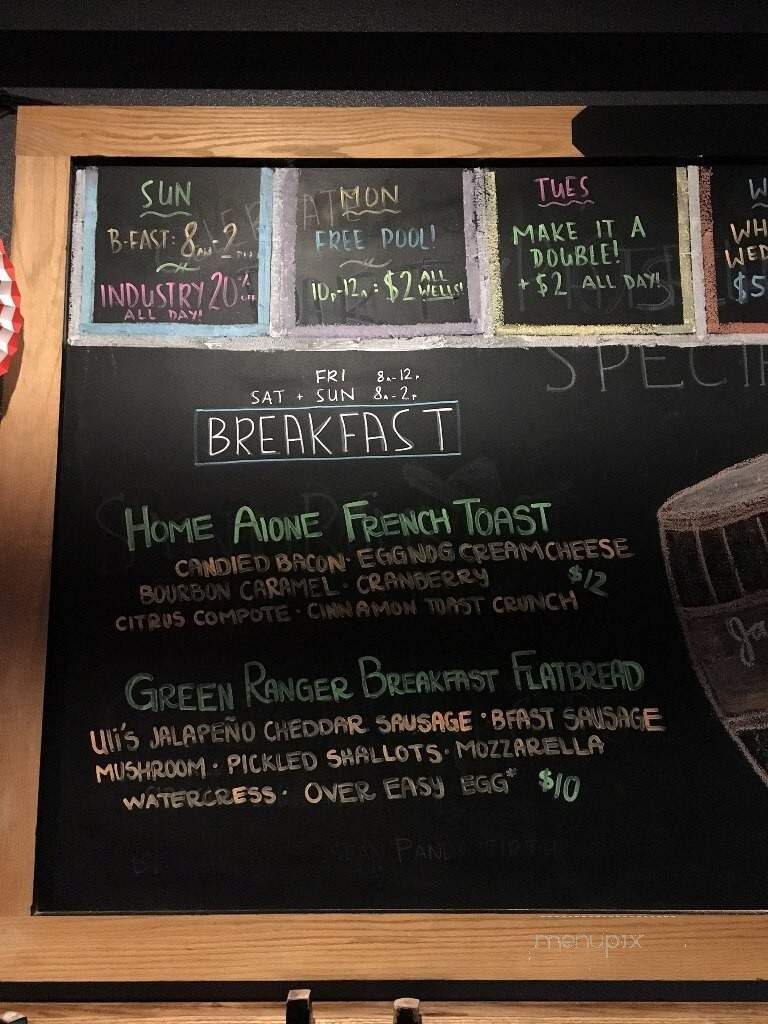 SUN
B-FAST: 8AM-2PM
INDUSTRY 20% OFF
ALL DAY!
MON
FREE POOL!
10P-12A: $2 ALL WELLS!
TUES
MAKE IT A
DOUBLE!
+$2 ALL DAY!
W
WH
WED
$5
SPECI
FRI 8A-12P
SAT + SUN 8A-2P
BREAKFAST
HOME AlONE FRENCH TOAST
CANDIED BACON · EGGNOG CREAM CHEESE
BOURBON CARAMEL · CRANBERRY $12
CITRUS COMPOTE · CINNAMON TOAST CRUNCH
GREEN RANGER BREAKFAST FLATBREAD
Uli's JALAPEÑO CHEDDAR SAUSAGE · BFAST SAUSAGE
MUSHROOM · PICKLED SHALLOTS · MOZZARELLA
WATERCRESS · OVER EASY EGG* $10
Ja
menupix